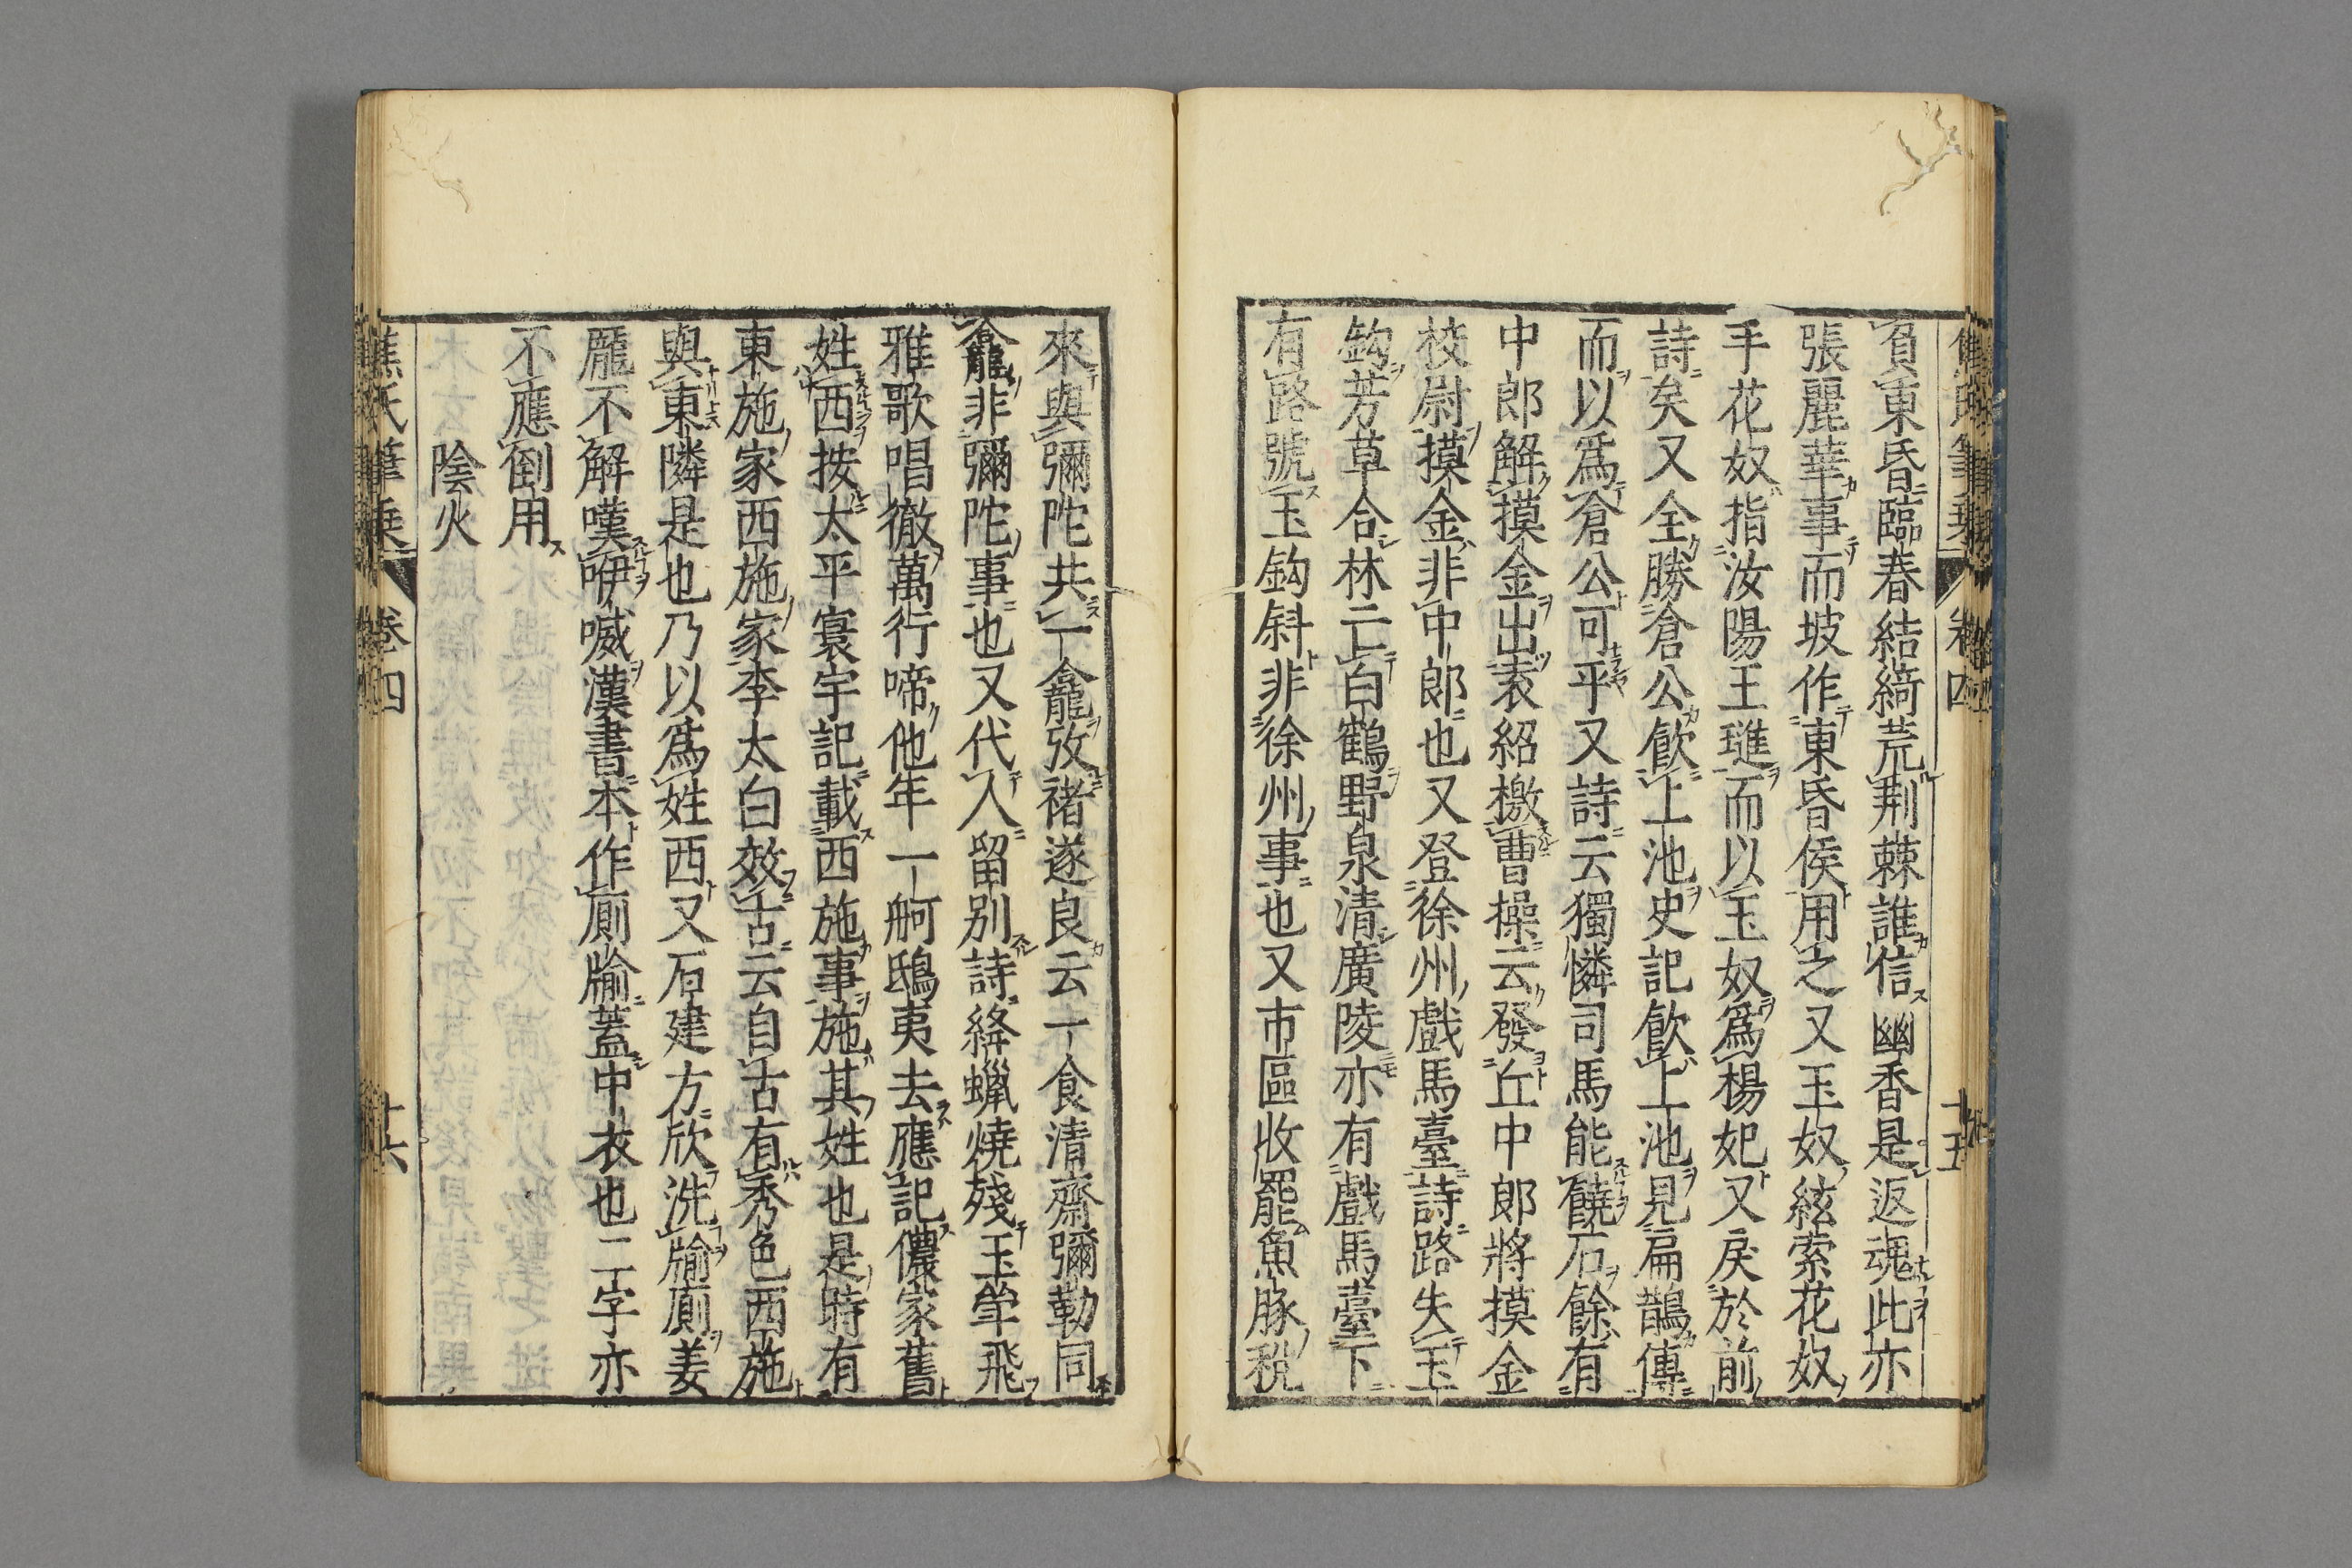 焦氏筆乘 卷四 十五
負東昏臨春結綺荒荆棘誰信幽香是返魂此亦
張麗華事而坡作東昏侯用之又玉奴絃索花奴
手花奴指汝陽王璡而以玉奴爲楊妃又戾於前
詩矣又全勝倉公飮上池史記飮上池見扁鵲傳
而以爲倉公可乎又詩云獨憐司馬能饒石餘有
中郎解摸金出袁紹檄曹操云發丘中郎將摸金
校尉摸金非中郎也又登徐州戲馬臺詩路失玉
鈎芳草合林亡白鶴野泉清廣陵亦有戲馬臺下
有路號玉鈎斜非徐州事也又市區收罷魚豚稅
來與彌陀共一龕攷褚遂良云一食清齋彌勒同
龕非彌陀事也又代人留别詩絳蠟燒殘玉斝飛
雅歌唱徹萬行啼他年一舸鴟夷去應記儂家舊
姓西按太平寰宇記載西施事施其姓也是時有
東施家西施家李太白效古云自古有秀色西施
與東隣是也乃以爲姓西又石建方欣洗牏廁姜
龎不解嘆咿喊漢書本作廁牏蓋中衣也二字亦
不應倒用
陰火
焦氏筆乘 卷四 十六